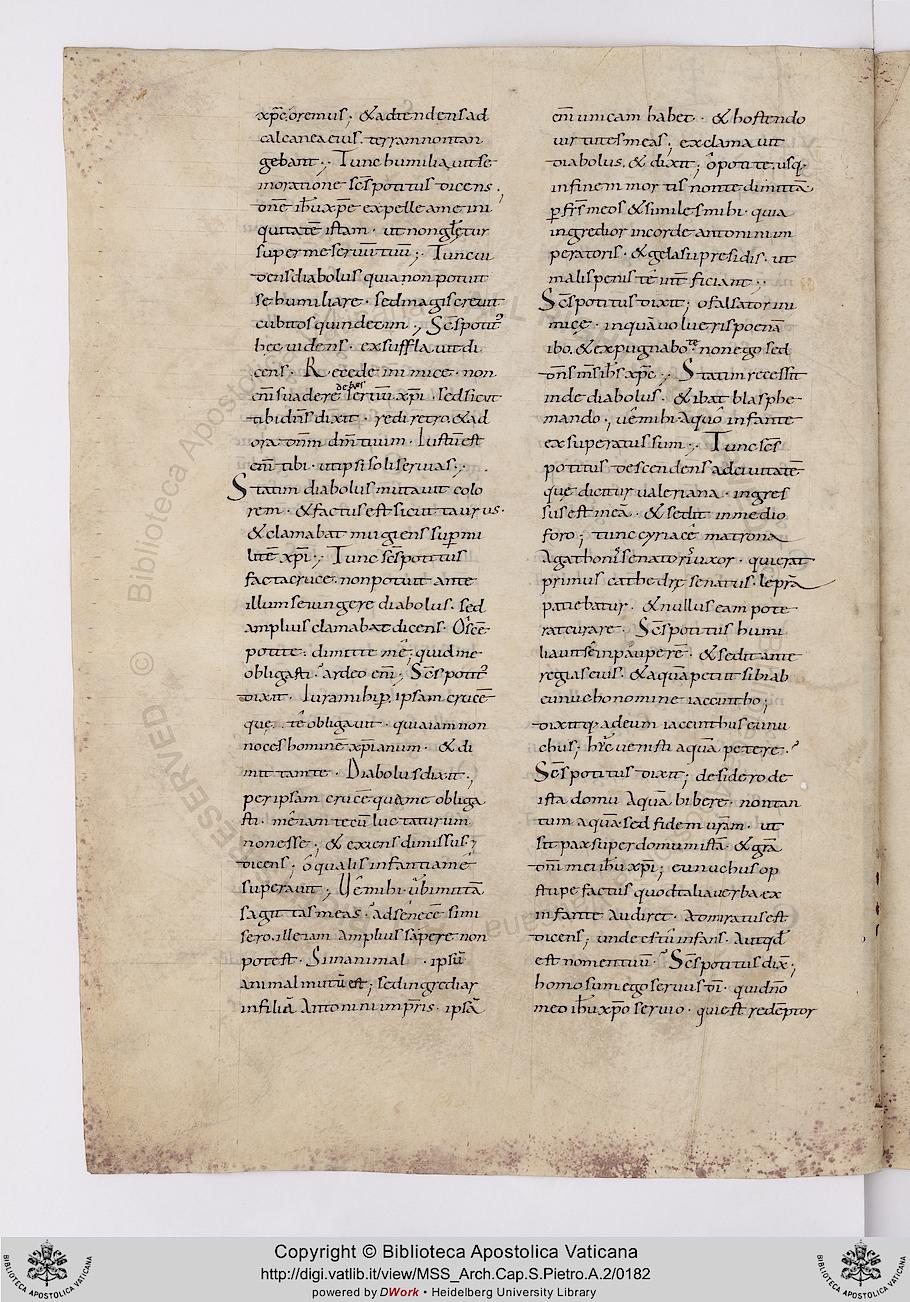 xp̄e oremus; & adtendens ad
calcanea eius. terram non tan
gebant;. Tunc humiliauit se
in oratione sc̄s potitus dicens;
dn̄e ih̄u xp̄e expelle a me ini
quitatē istam. ut non
super me seruū tuū;. Tunc ui
dens diabolus quia non potuit
se humiliare. sed magis creuit
cubitos quindecim; Sc̄s potit᾽
hec uidens. exsufflauit di
cens. Recede inimice. non
em̄ suadere seruū xp̄i. sed sicut
tibi dn̄s dixit. redi retro & ad
ora dn̄m dm̄ tuum. Iustū est
em̄ tibi. ut ipsi soli seruias;.
Statim diabolus mutauit colo
rem. & factus est sicut taurus.
& clamabat mugiens sup̄ mi
litē xp̄i;. Tunc sc̄s potitus
facta cruce. non potuit ante
illum se iungere diabolus. sed
amplius clamabat dicens. O sc̄e
potite. dimitte me; quid me
obligasti. ardeo em̄; Sc̄s potit᾽
dixit. Iura mihi p̄ ipsam crucē
que te obligauit. quia iam non
noces homine xp̄ianum. & di
mittam te. Diabolus dixit;
per ipsam crucē quā me obliga
sti. me iam tecū luctaturum
non esse; & exiens dimissus;
dicens; o qualis infantia me
superauit; Ue mihi. ubi mittā
sagittas meas. ad senece si mi
sero. ille iam amplius sapere non
potest. Si in animal. ipsū
animal mutū est; sed ingrediar
in filiā Antonini imp̄ris. ipsā
em̄ unicam habet. & hostendo
uirtutes meas; exclamauit
diabolus. & dixit; o potite. usq.
in finem mortis non te dimittā
p̄ fr̄s meos & similes mihi. quia
ingredior in corde antonini im
peratoris. & gelasii presidis. ut
malis penis te int̄ficiant;.
Sc̄s potitus dixit; o falsator ini
mice. in quā uolueris poenā
ibo. & expugnabo te non ego sed
dn̄s m̄s ih̄s xp̄c;. Statim recessit
inde diabolus. & ibat blasphe
mando; ue mihi. A quo infante
exsuperatus sum;. Tunc sc̄s
potitus descendens ad ciuitatē
que dicitur ualeriana. ingres
sus est in eā. & sedit in medio
foro; tunc cyriace matrona
Agathonis senatoris uxor. qui erat
primus cathedrę senatus. leprā
patiebatur. & nullus eam pote
rat curare. Sc̄s potitus humi
liauit se in paupere. & sedit ante
regias eius. & aquā petiit sibi ab
eunucho nomine iaccintho;
dixitq. ad eum iaccinthus eunu
chus; huc uenisti aquā petere.
Sc̄s potitus dixit; desidero de
ista domu Aquā bibere. non tan
tum aquā. sed fidem ur̄am. ut
sit pax super domum istā. & gr̄a
dn̄i mei ih̄u xp̄i; eunuchus op
stupe factus quod talia uerba ex
infante Audiret. Admiratus est
dicens; unde es tu infans. Aut qd̄
est nomen tuū. Sc̄s potitus dix̄;
homo sum ego seruus dī. qui dn̄o
meo ih̄u xp̄o seruio. qui est redēptor
Copyright © Biblioteca Apostolica Vaticana
http://digi.vatlib.it/view/MSS_Arch.Cap.S.Pietro.A.2/0182
powered by DWork • Heidelberg University Library